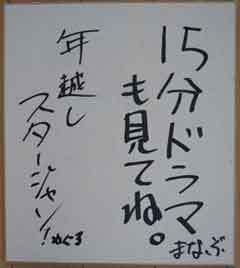 15分ドラマ
も見てね。
まなぶ
年越し
スタージャン!
めぐる